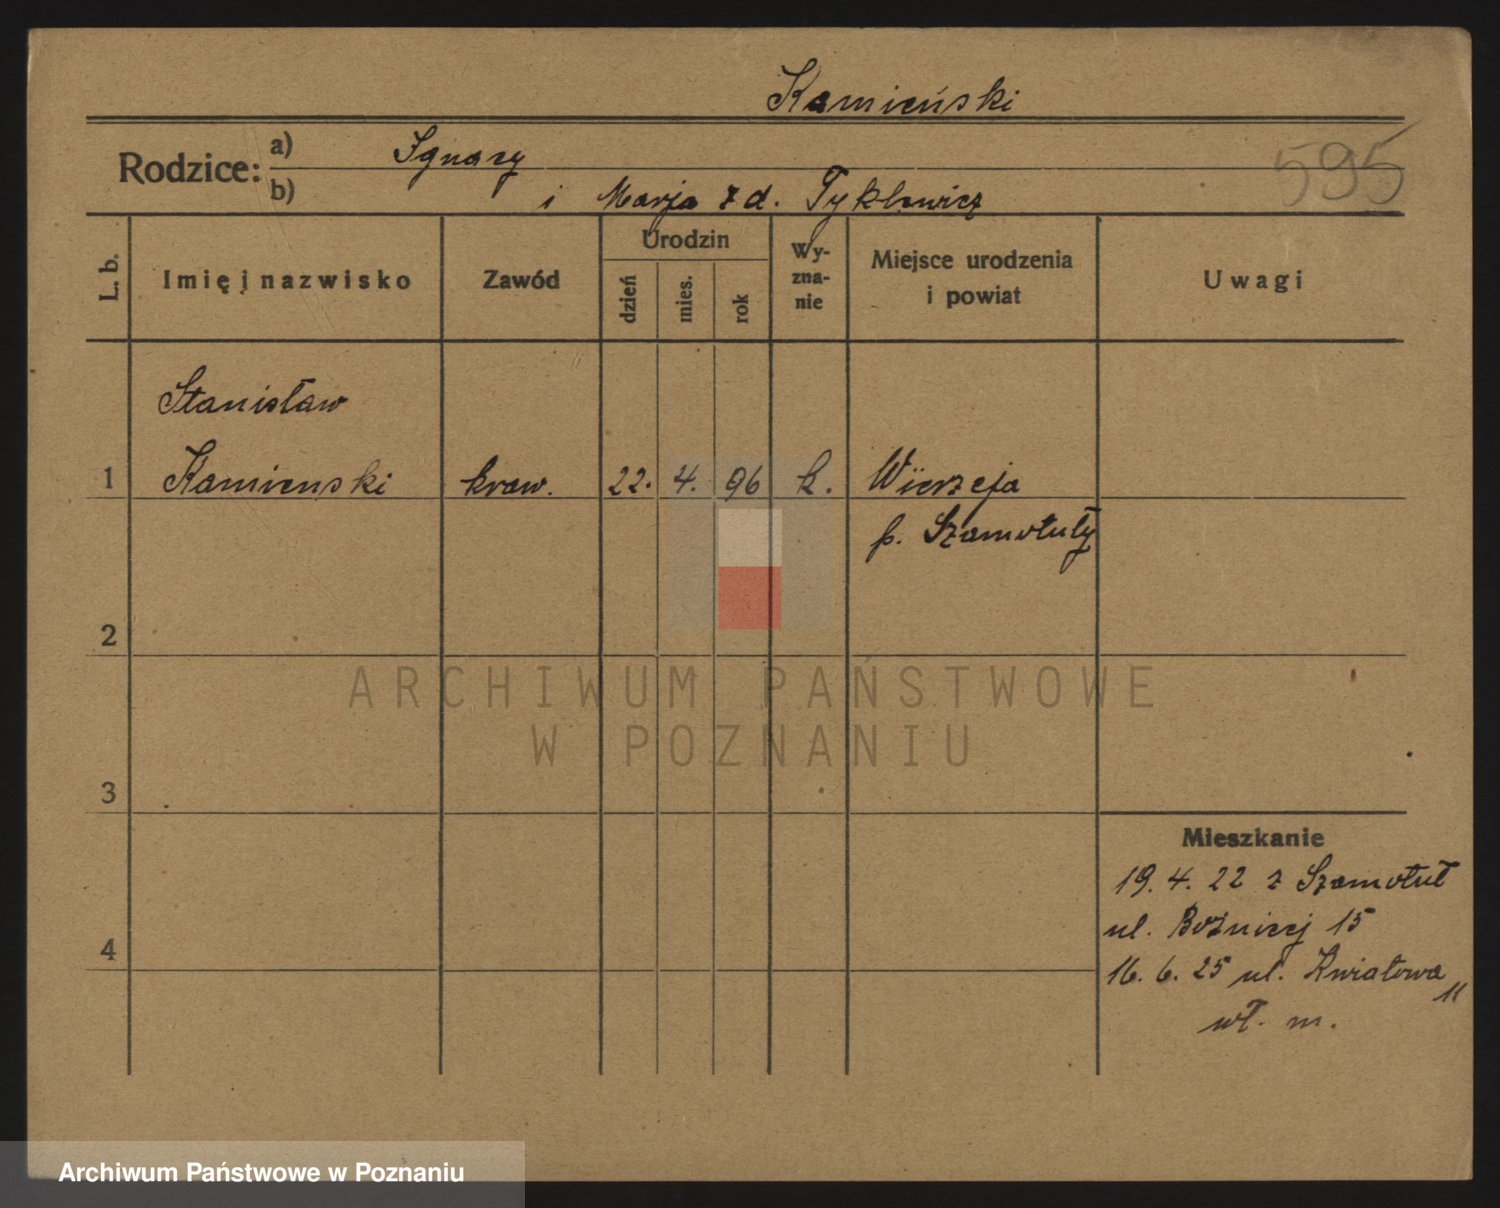 Kamieński
595
Rodzice: a) Ignacy
b) i Marja z d. Tyklewicz
L. b.
Imię i nazwisko
Zawód
Urodzin
dzień
mies.
rok
Wy-
zna-
nie
Miejsce urodzenia
i powiat
Uwagi
Stanisław
1 Kamienski kraw. 22. 4. 96 k. Wierzeja
p. Szamotuły
2
ARCHIWUM PAŃSTWOWE
W POZNANIU
3
Mieszkanie
19. 4. 22 z Szamotuł
ul. 15
4
16. 6. 25 ul. Kwiatowa 11
wł. m.
Archiwum Państwowe w Poznaniu